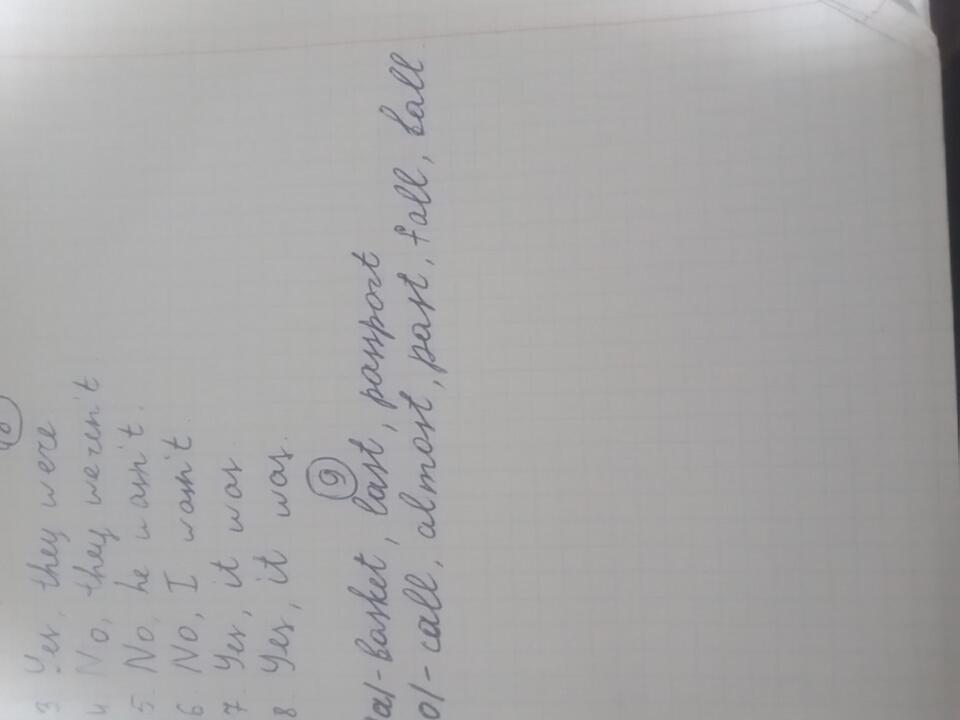 3. Yes, they were
4. No, they weren't
5. No, he wasn't.
6. No, I wasn't
7. Yes, it was
8. Yes, it was.
9
/a/ - basket, last, passport
/o/ - call, almost, past, fall, ball